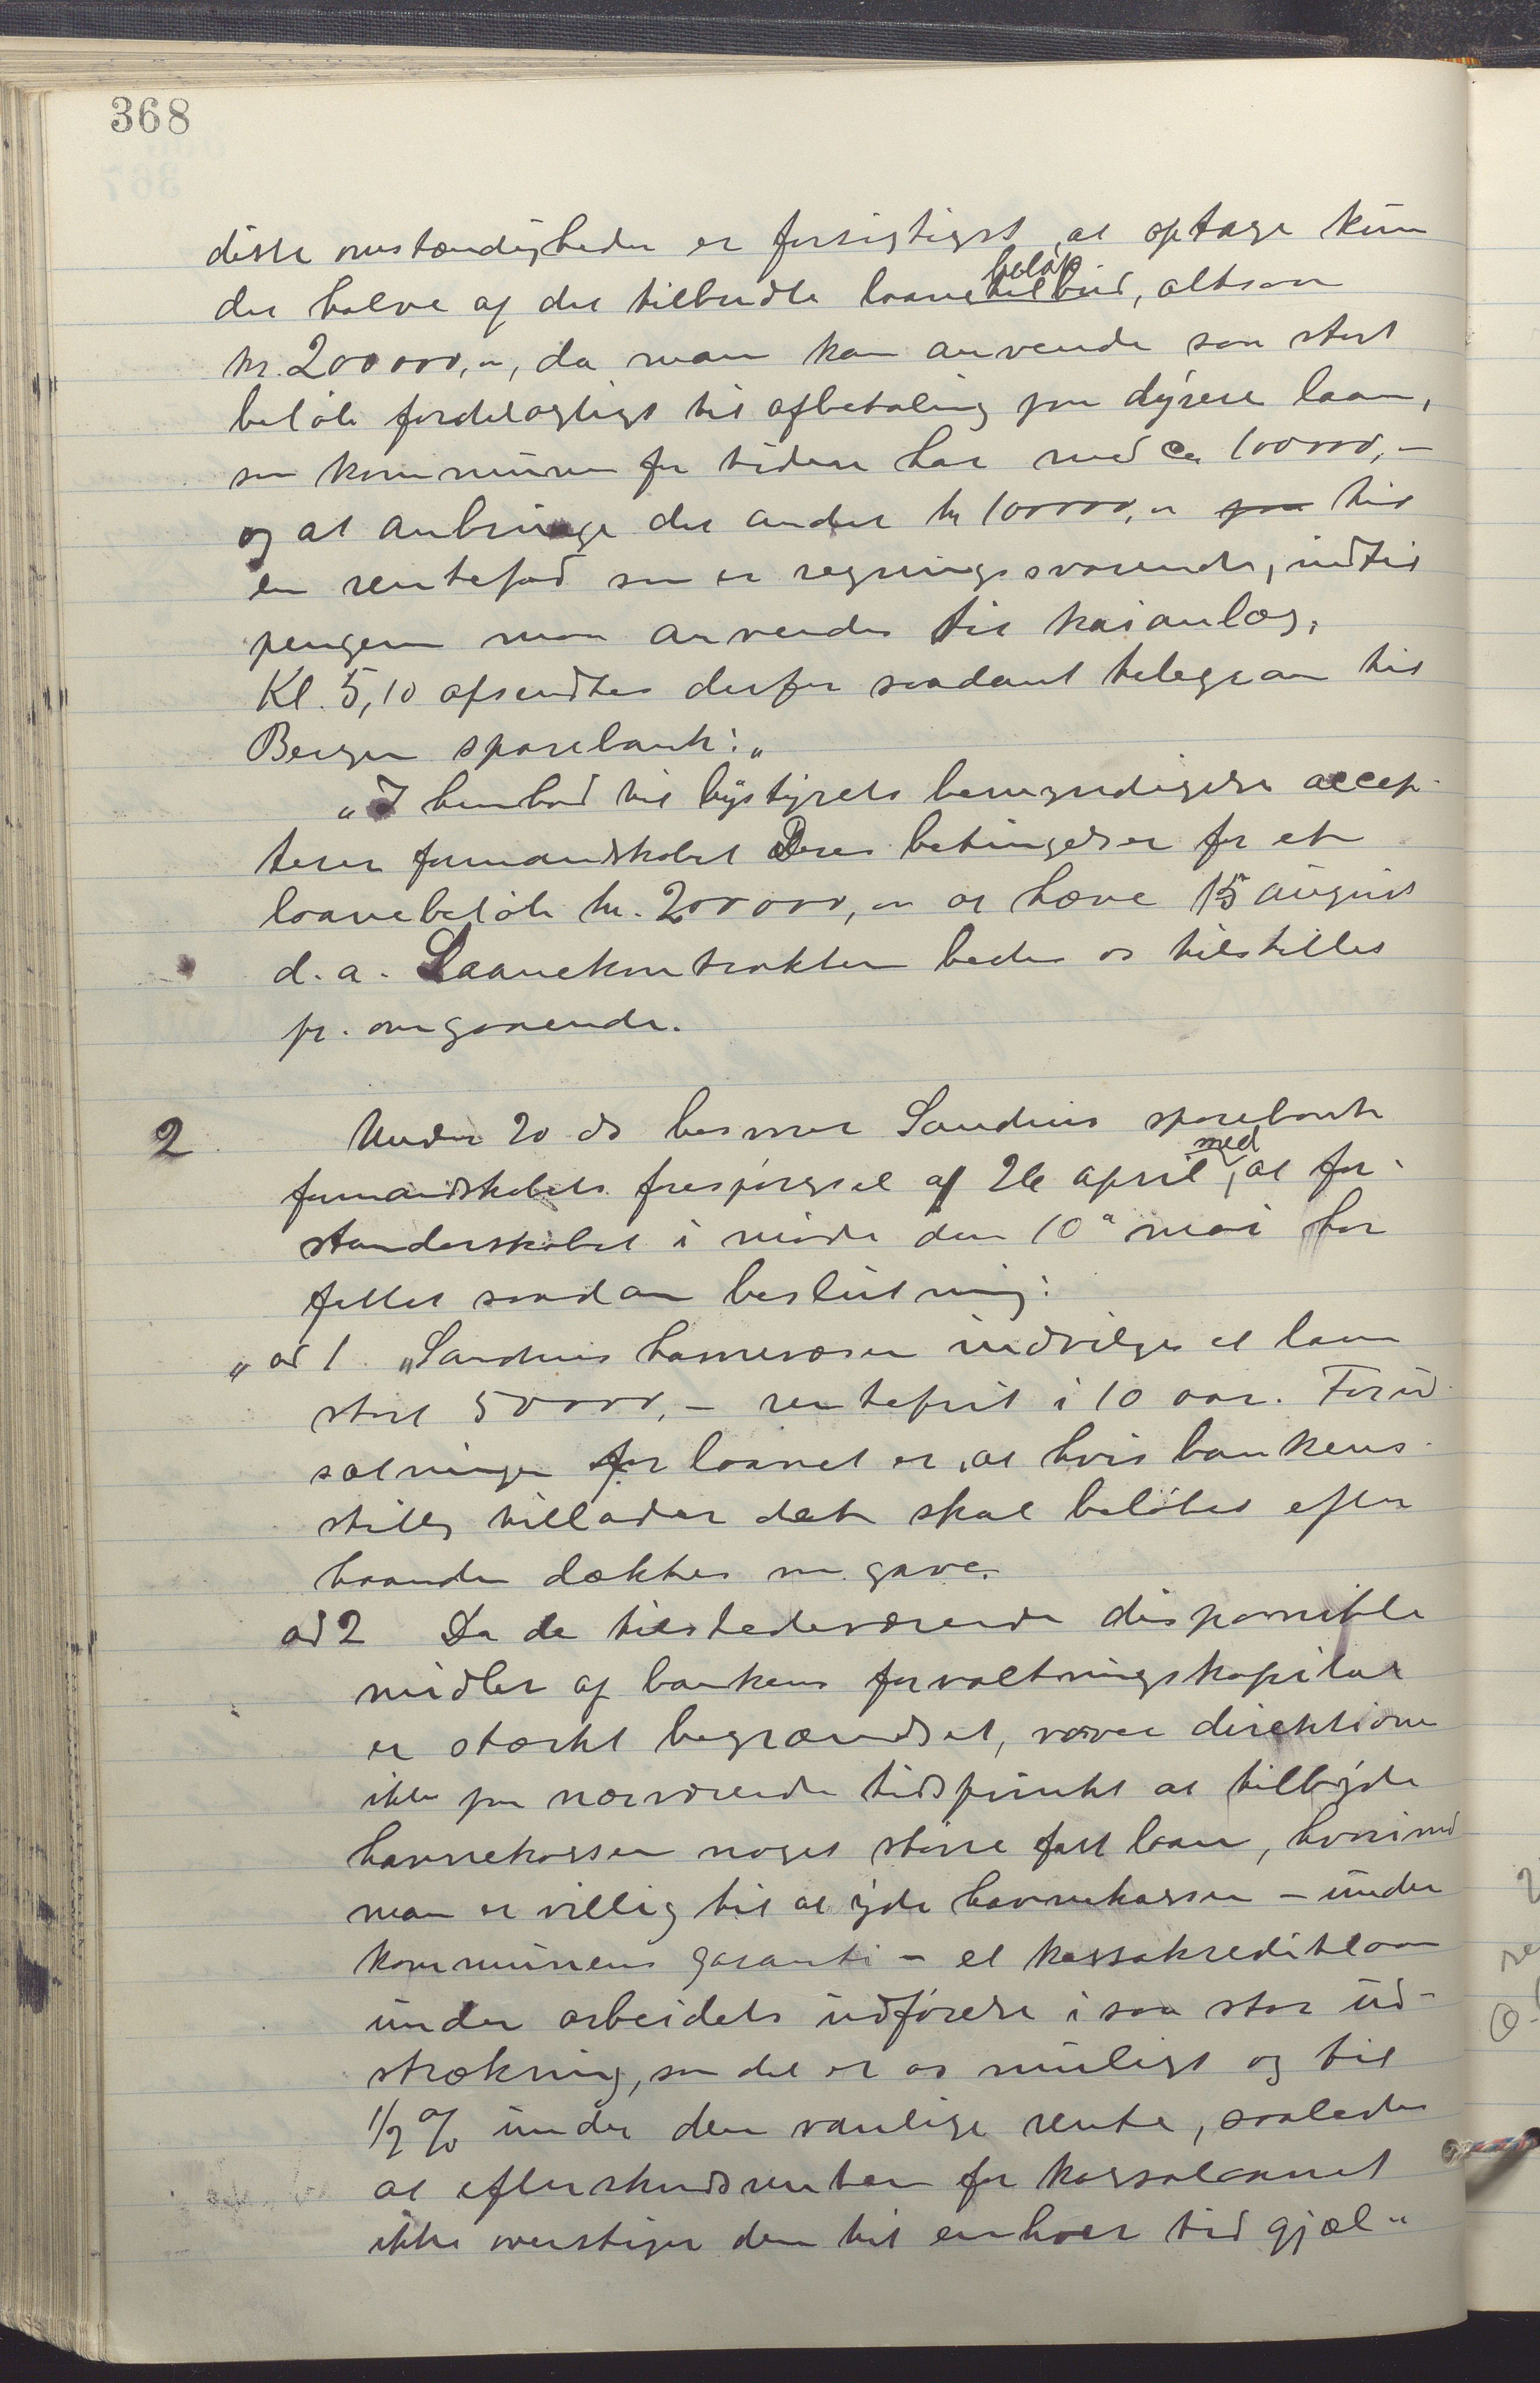 368
disse omstændigheder er forsigtigst, at optage kun
det halve af det tilbudte laanetilbud, altsaa
beløp
kr. 200000,-, da man kan anvende saa stort
beløb fordelagtigt til afbetaling paa dyrere laan,
som kommunen for tiden har med ca 100000,-
og at anbringe det andet kr 100000,- paa til
en rentefod som er regningssvarende, indtil
pengene maa anvendes til kaianlæg.
Kl. 5,10 afsendtes derfor saadant telegram til
Bergen sparebank: „
„I henhold til bystyrets bemyndigelse accep-
terer formandskabet Deres betingelser for et
laanebeløb kr. 200000,- at hæve 15 august
d. a. Laanekontrakten bedes os tilstillet
pr. omgaaende.
2 Under 20 ds besvarer Sandnes sparebank
formandskabets forespørgsel af 26 april med, at for-
standerskabet i møde den 10" mai har
fattet saadan beslutning:
„ad 1. „Sandnes havnevæsen indvilges et laan
stort 50000,- rentefrit i 10 aar. Forud-
sætningen for laanet er, at hvis bankens
stilling tillader det skal beløbet efter-
haanden dækkes som gave.
ad 2 Da de tilstedeværende disponible
midler af bankens forvaltningskapital
er stærkt begrændset, vover direktionen
ikke paa nærværende tidspunkt at tilbyde
havnekassen noget større fast laan, hvorimod
man er villig til at yde havnekassen – under
kommunens garanti – et kassakreditlaan
under arbeidets udførelse i saa stor ud-
strækning, som det er os muligt og til
1/2 % under den vanlige rente, saaledes
at efterskudsrenten for kassalaanet
ikke overstiger den til enhver tid gjæl-